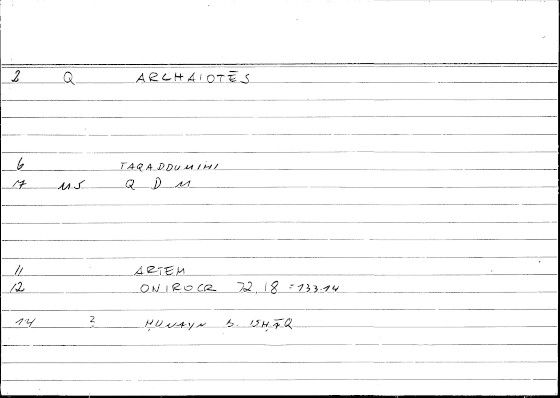 2 Q ARCHAIOTĒS
6 TAQADDUMIHI
17 MS Q D M
11 ARTEM
12 ONIROCR 72,18 = 133.14
14 ? ḤUNAYN B. ISḤĀQ